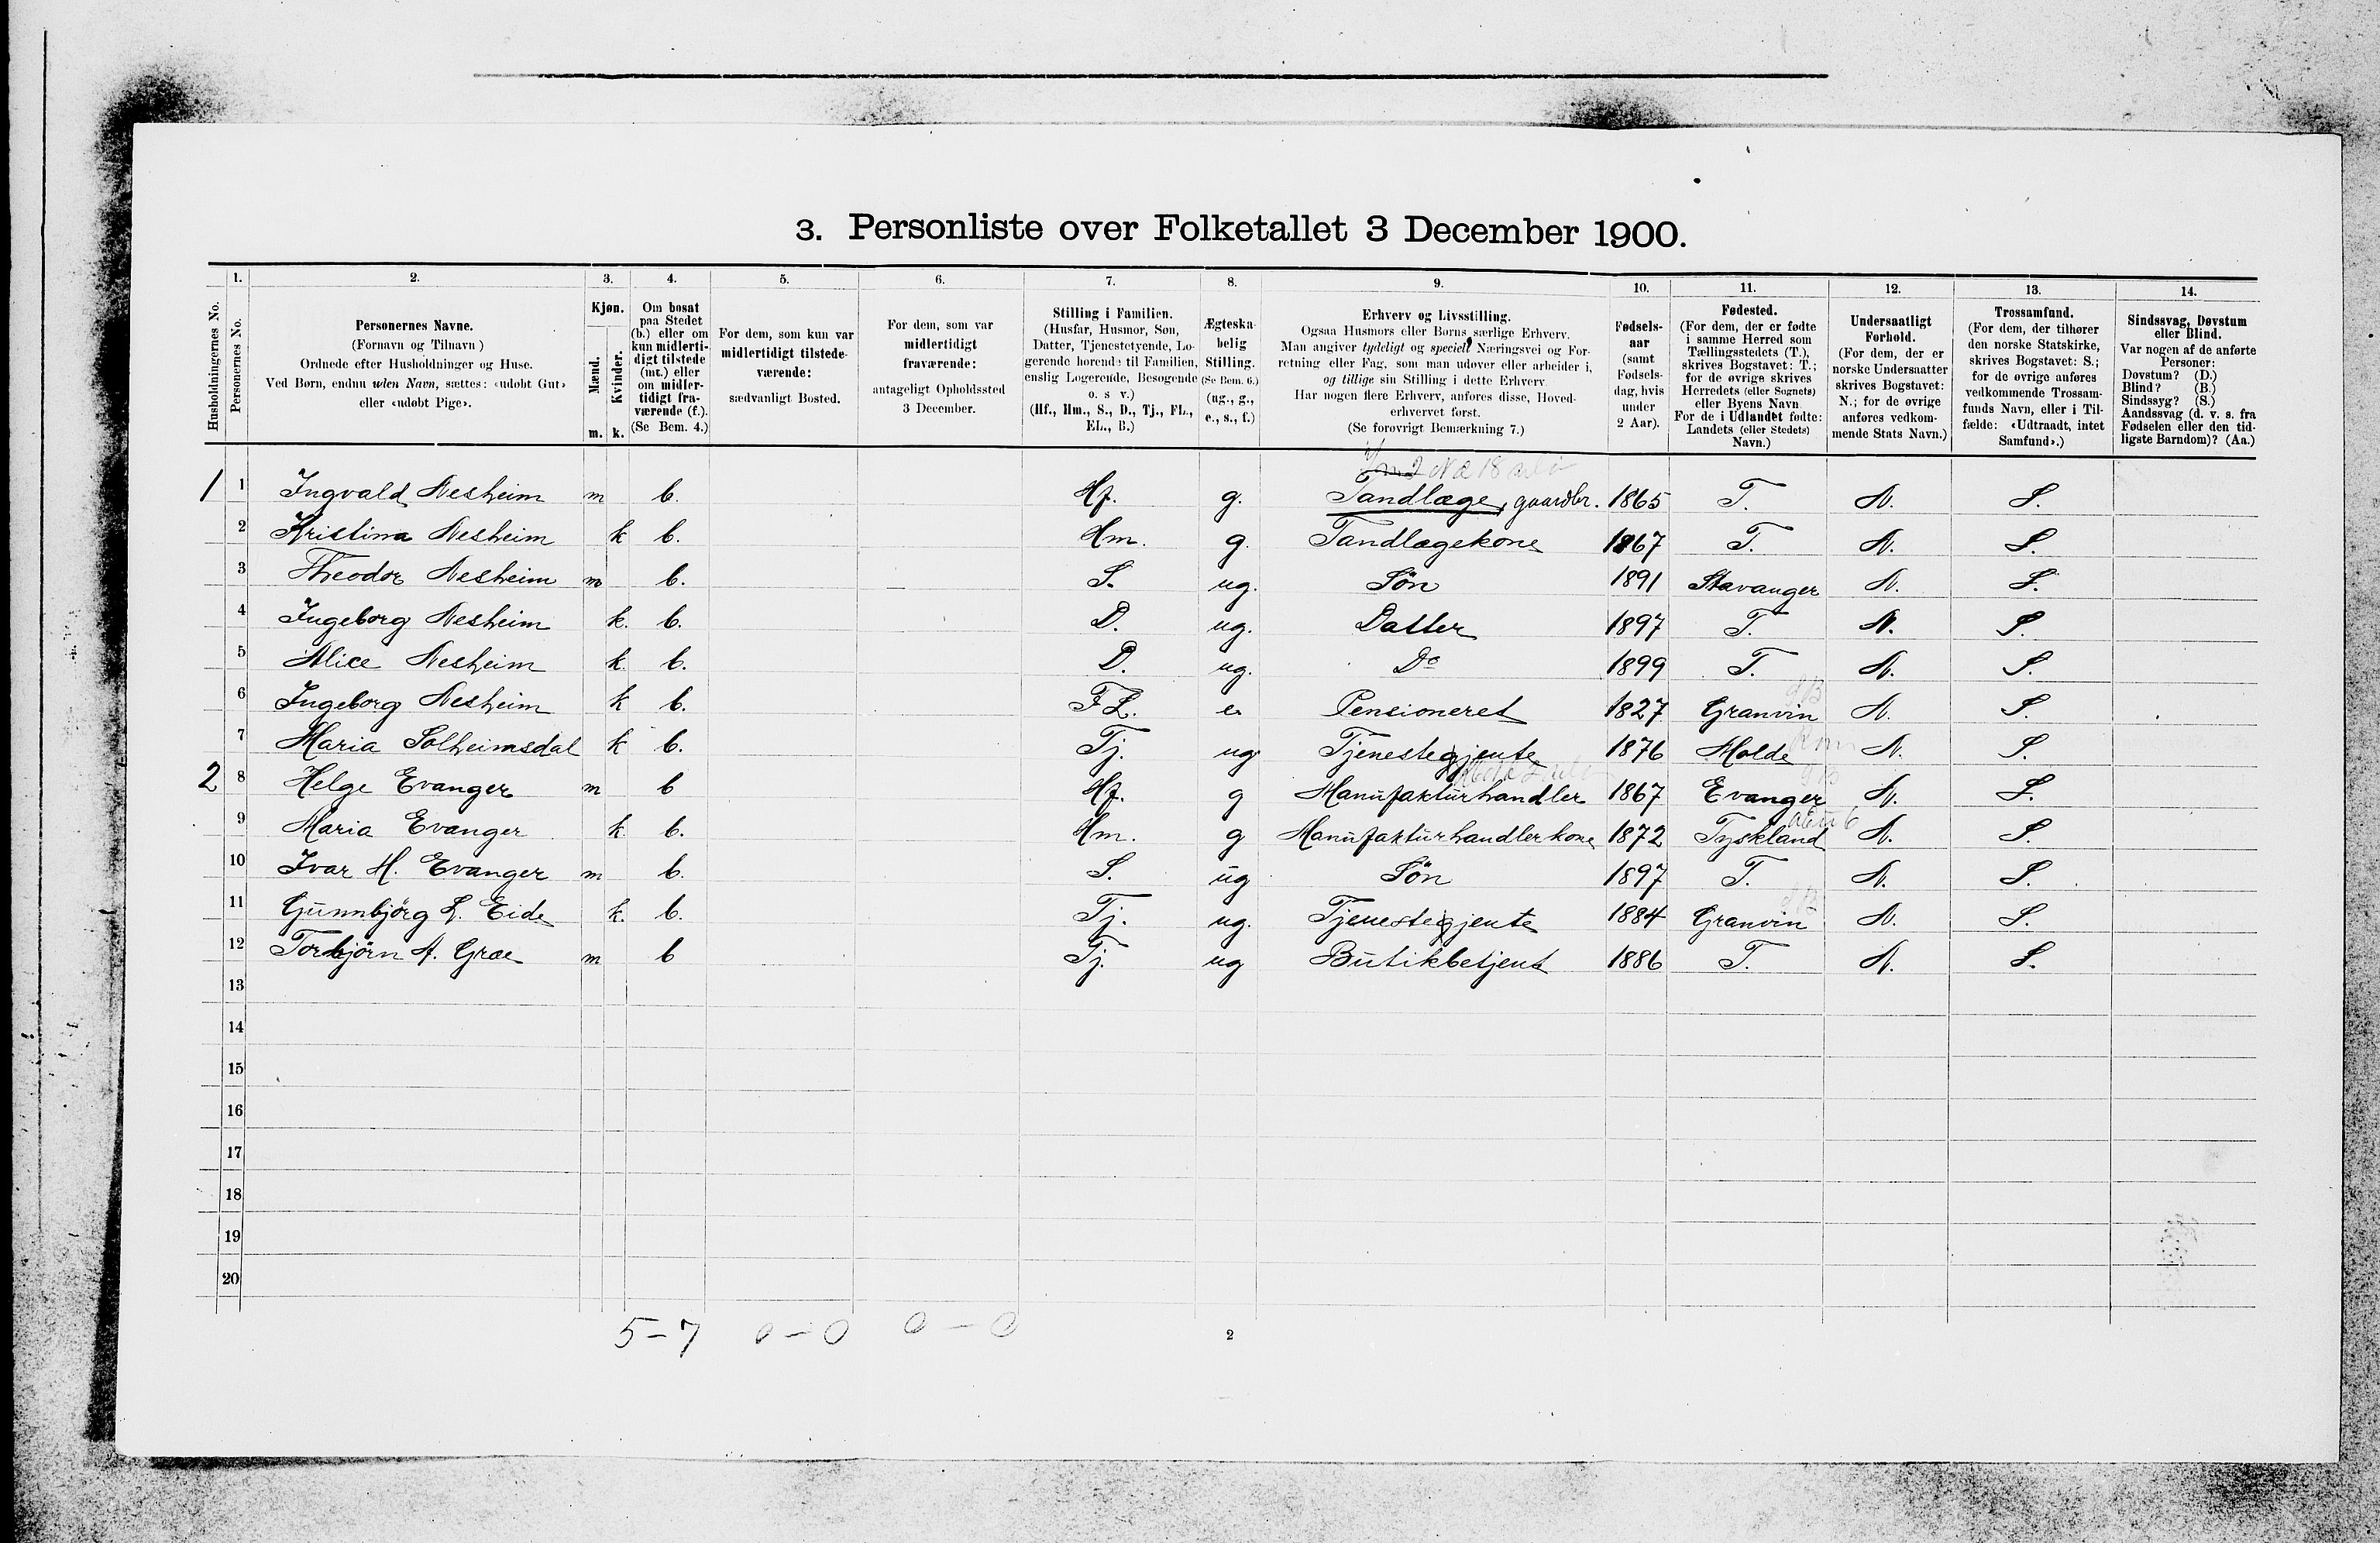 3. Personliste over Folketallet 3 December 1900.
Husholdningernes No.
1. Personernes No.
2. Personernes Navne.
(Fornavn og Tilnavn)
Ordnede efter Husholdninger og Huse.
Ved Børn, endnu uden Navn, sættes: «udøbt Gut»
eller «udøbt Pige».
3. Kjøn.
Mænd. m.
Kvinder. k.
4. Om bosat
paa Stedet
(b.) eller om
kun midlerti-
digt tilstede
(mt.) eller
om midler-
tidigt fra-
værende (f.).
(Se Bem. 4.)
5. For dem, som kun var
midlertidigt tilstede-
værende:
sædvanligt Bosted.
6. For dem, som var
midlertidigt
fraværende:
antageligt Opholdssted
3 December.
7. Stilling i Familien.
(Husfar, Husmor, Søn,
Datter, Tjenestetyende, Lo-
gerende hørende til Familien,
enslig Logerende, Besøgende
o. s v.)
(Hf., Hm., S., D., Tj., FL.,
EL., B.)
8. Ægteska-
belig
Stilling.
(Se Bem. 6.)
(ug., g.,
e., s., f.)
9. Erhverv og Livsstilling.
Ogsaa Husmors eller Børns særlige Erhverv.
Man angiver tydeligt og specielt Næringsvei og For-
retning eller Fag, som man udøver eller arbeider i,
og tillige sin Stilling i dette Erhverv.
Har nogen flere Erhverv, anføres disse, Hoved-
erhvervet først.
(Se forøvrigt Bemærkning 7.)
10. Fødsels-
aar
(samt
Fødsels-
dag, hvis
under
2 Aar).
11. Fødested.
(For dem, der er fødte
i samme Herred som
Tællingsstedets (T.),
skrives Bogstavet: T.;
for de øvrige skrives
Herredets (eller Sognets)
eller Byens Navn
For de i Udlandet fødte:
Landets (eller Stedets)
Navn.)
12. Undersaatligt
Forhold.
(For dem, der er
norske Undersaatter
skrives Bogstavet:
N.; for de øvrige
anføres vedkom-
mende Stats Navn.)
13. Trossamfund.
(For dem, der tilhører
den norske Statskirke,
skrives Bogstavet: S.;
for de øvrige anføres
vedkommende Trossam-
funds Navn, eller i Til-
fælde: «Udtraadt, intet
Samfund».)
14. Sindssvag, Døvstum
eller Blind.
Var nogen af de anførte
Personer:
Døvstum? (D.)
Blind? (B.)
Sindssyg? (S.)
Aandssvag (d. v. s. fra
Fødselen eller den tid-
ligste Barndom)? (Aa.)
1 1 Ingvald Nesheim m b. Hf. g. Tandlæge, gaardbr. 1865 T. N. S.
2 Kristina Nesheim k b. Hm. g. Tandlægekone 1867 T. N. S.
3 Theodor Nesheim m b. S. ug. Søn 1891 Stavanger N. S.
4 Ingeborg Nesheim k. b. D. ug. Datter 1897 T. N. S.
5 Alice Nesheim k. b. D. ug. Do 1899 T. N. S.
6 Ingeborg Nesheim k b. FL. e. Pensioneret 1827 Granvin N. S.
7 Maria Solheimsdal k b. Tj. ug Tjenestegjente 1876 Molde N. S.
2 8 Helge Evanger m b Hf. g Manufakturhandler 1867 Evanger N. S.
9 Maria Evanger k. b. Hm. g Manufakturhandlerkone 1872 Tyskland N. S.
10 Ivar H. Evanger m b. S. ug Søn 1897 T. N. S.
11 Gunnbjörg L. Eide k. b. Tj. ug. Tjenestegjente 1884 Granvin N. S.
12 Torbjörn A. Græ m b Tj. ug Butikbetjent 1886 T. N. S.
13
14
15
16
17
18
19
20
5-7 0-0 0-0
2